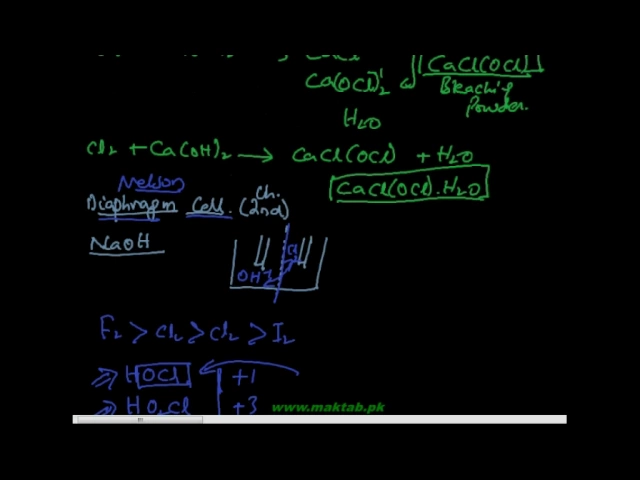 CaCl(OCl)
Ca(OCl)2
Bleaching
Powder.
H2O
Cl2 + Ca(OH)2 → CaCl(OCl) + H2O
CaCl(OCl).H2O
Nelson
Diaphragm Cell. (Ch. 2nd)
NaOH
OH-
F2 > Cl2 > Cl2 > I2
⇒ HOCl +1
⇒ HO2Cl +3
www.maktab.pk